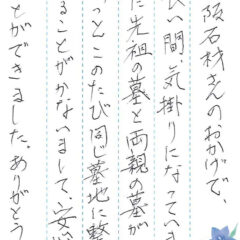 阪石材さんのおかげで、
長い間気掛りになっていま
た先祖の墓と両親の墓が
っとこのたび同じ墓地に整
ることがかないまして、安
とができました。ありがとう